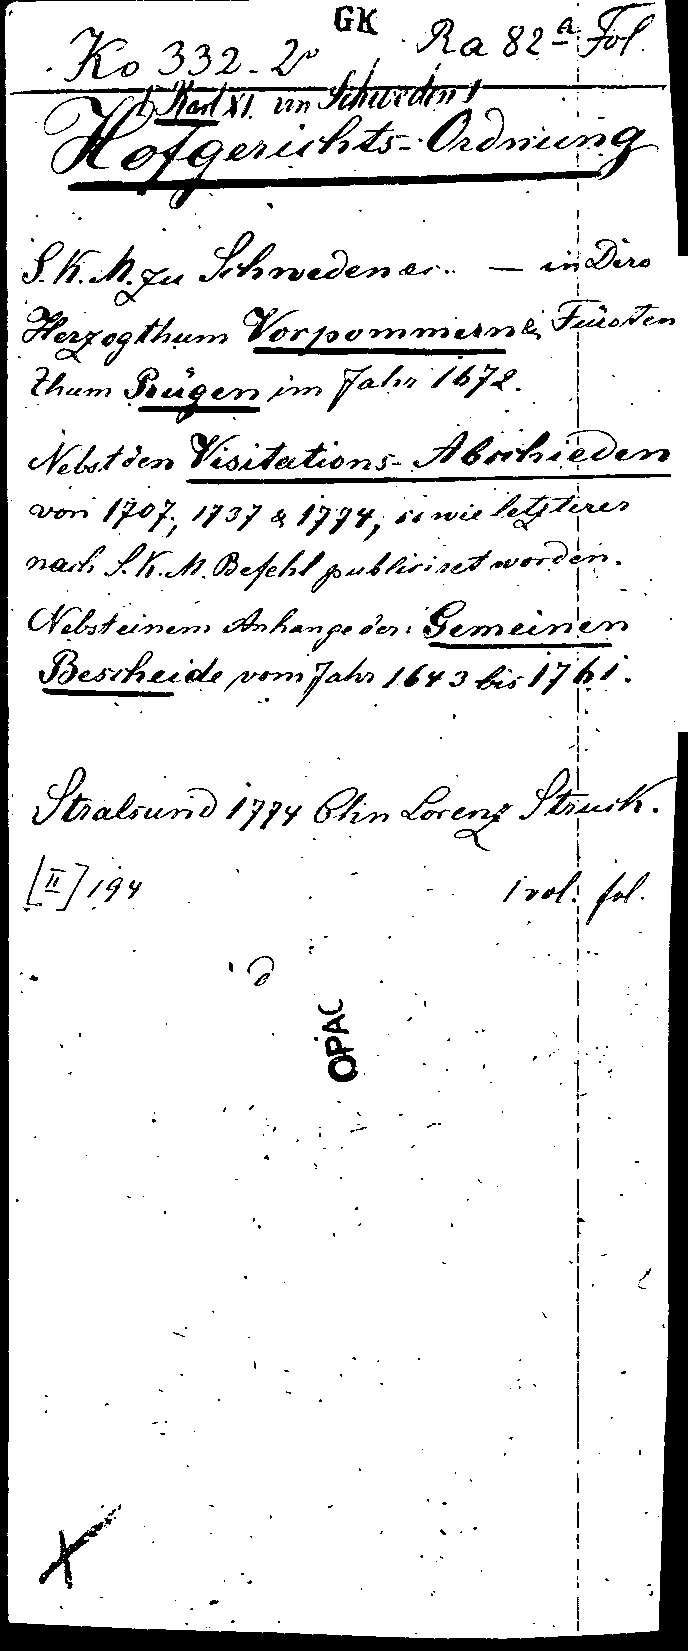 GK
Ko 332. 2° Ra 82ª Fol.
Karl XI. von Schweden
Hofgerichts-Ordnung
S. K. M. zu Schweden etc. — in Dero
Herzogthum Vorpommern & Fürsten
thum Rügen im Jahr 1672.
Nebst den Visitations-Abschieden
von 1707, 1737 & 1774, so wie letzterer
nach S. K. M. Befehl publiciret worden.
Nebst einem Anhange der Gemeinen
Bescheide vom Jahr 1643 bis 1761.
Stralsund 1774 Chn Lorenz Struck.
[II] 194 1 vol. fol.
OPAC